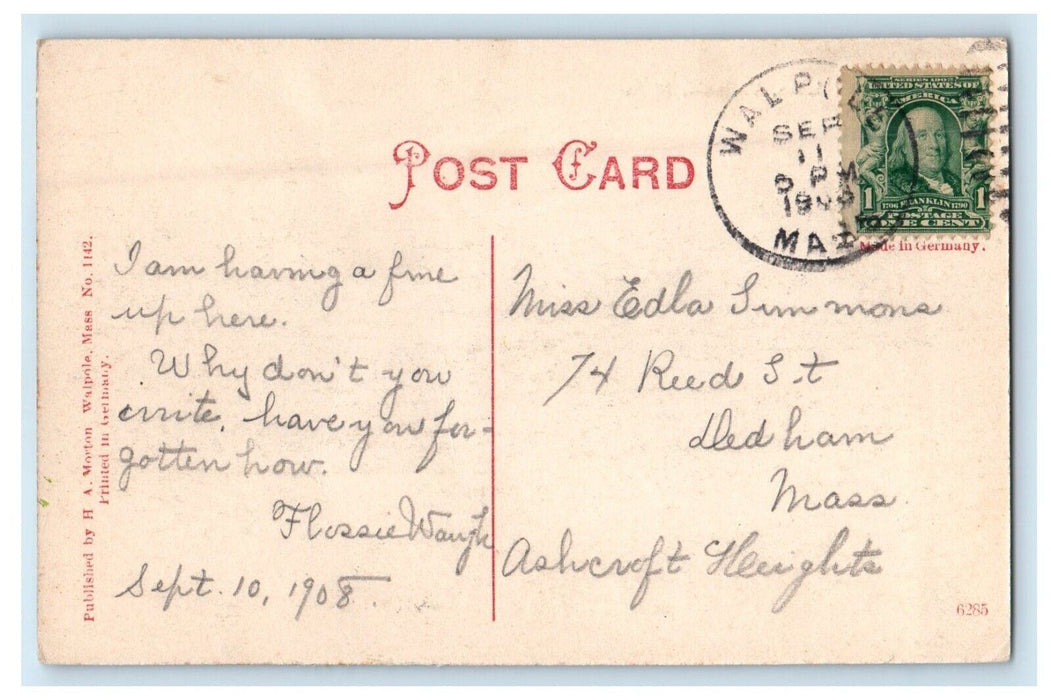 POST CARD
WALPOLE
SEP
11
6 PM
MASS
SERIES 1902
UNITED STATES OF
AMERICA
1 1706 FRANKLIN 1790 1
POSTAGE
ONE CENT
Made in Germany.
Published by H. A. Morton Walpole, Mass No. 1142.
Printed in Germany.
I am having a fine
up here.
Why don't you
write, have you for-
gotten how.
Flossie Waugh
Sept. 10, 1908
Miss Edla Simmons
74 Reed St
Dedham
Mass
Ashcroft Heights
6285